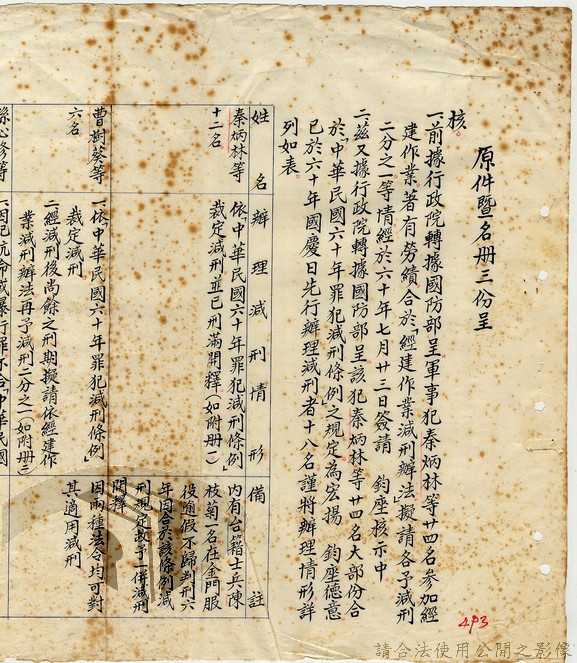 原件暨名册三份呈
核
一、前據行政院轉據國防部呈軍事犯秦炳林等廿四名參加經
建作業著有勞績合於「經建作業減刑辦法」擬請各予減刑
二分之一等情經於六十年七月廿三日簽請 鈞座核示中
二、茲又據行政院轉據國防部呈該犯秦炳林等廿四名大部份合
於「中華民國六十年罪犯減刑條例」之規定為宏揚 鈞座德意
已於六十年國慶日先行辦理減刑者十八名謹將辦理情形詳
列如表
姓名
辦理減刑情形
備註
秦炳林等
十二名
依「中華民國六十年罪犯減刑條例」
裁定減刑並已刑滿開釋(如附册一)
內有台籍士兵陳
枝菊一名在金門服
役逾假不歸判刑六
年因合於該條例減
刑規定故予一併減刑
開釋
曹樹葵等
六名
一、依「中華民國六十年罪犯減刑條例」
裁定減刑
二、經減刑後尚餘之刑期擬請依經建作
業減刑辦法再予減刑二分之一(如附册二)
因兩種法令均可對
其適用減刑
心修等
一、因犯抗命或暴行罪不合「中華民國
493
請合法使用公開之影像